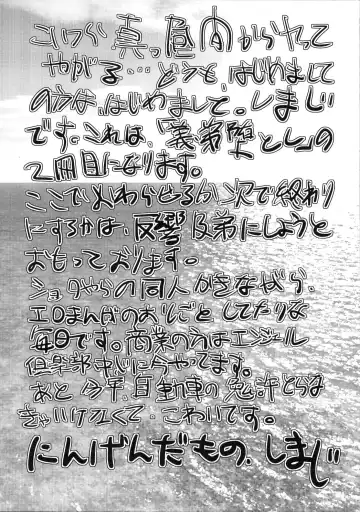 こいつら真っ昼間からヤって
やがる…どうも、はじめまして
の方は、はじめまして。しまじ
です。これは、「義弟堕とし」の
2冊目になります。
ここでおわらせるか次で終わり
にするかは、反響次第にしようと
おもっております。
ショタやらの同人かきながら、
エロまんがのおしごとしてたりな
毎日です。商業の方はエンジェル
倶楽部中心に今やってます。
あと今年、自動車の免許とらな
きゃいけなくて、こわいです。
にんげんだもの、しまじ